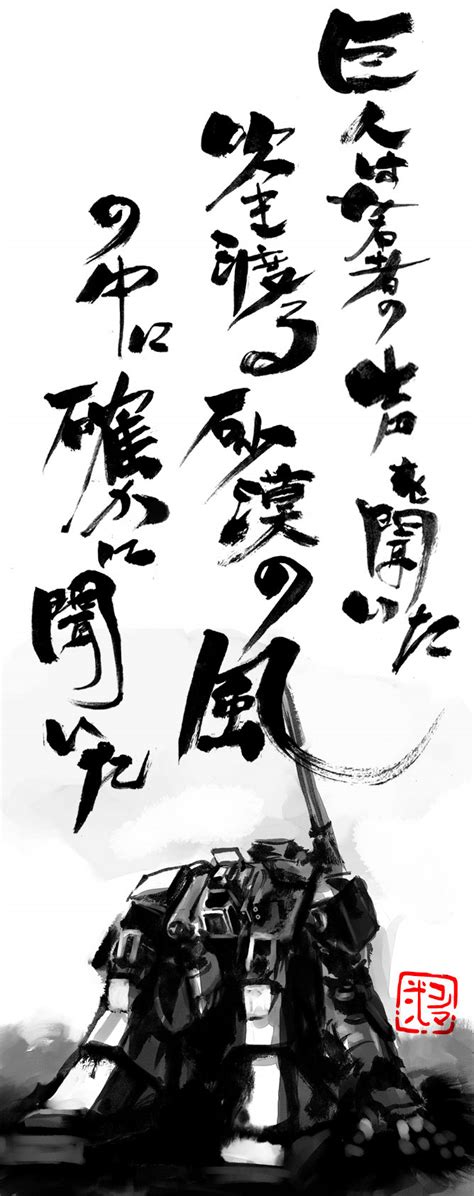 巨人は若者の声を聞いた
吹き渡る砂漠の風
の中に確かに聞いた